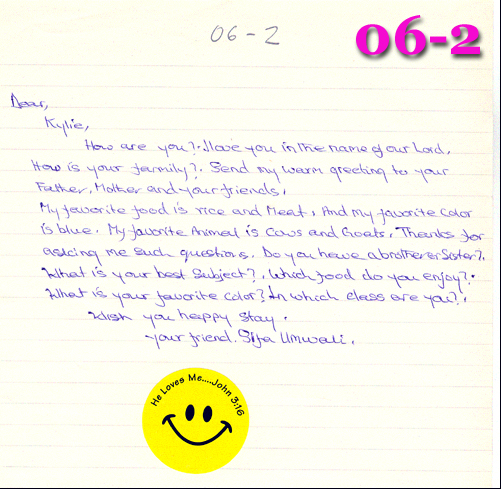 06-2
06-2
Dear,
Kylie,
How are you?. I love you in the name of our Lord.
How is your family?. Send my warm greeting to your
Father, Mother and your friends.
My favorite food is rice and Meat. And my favorite color
is blue. My favorite Animal is Cows and Goats. Thanks for
asking me such questions. Do you have a brother or Sister?.
What is your best Subject?. Which food do you enjoy?.
What is your favorite color? In which class are you?.
Wish you happy stay.
your friend. Sifa Umwali.
He Loves Me....John 3:16